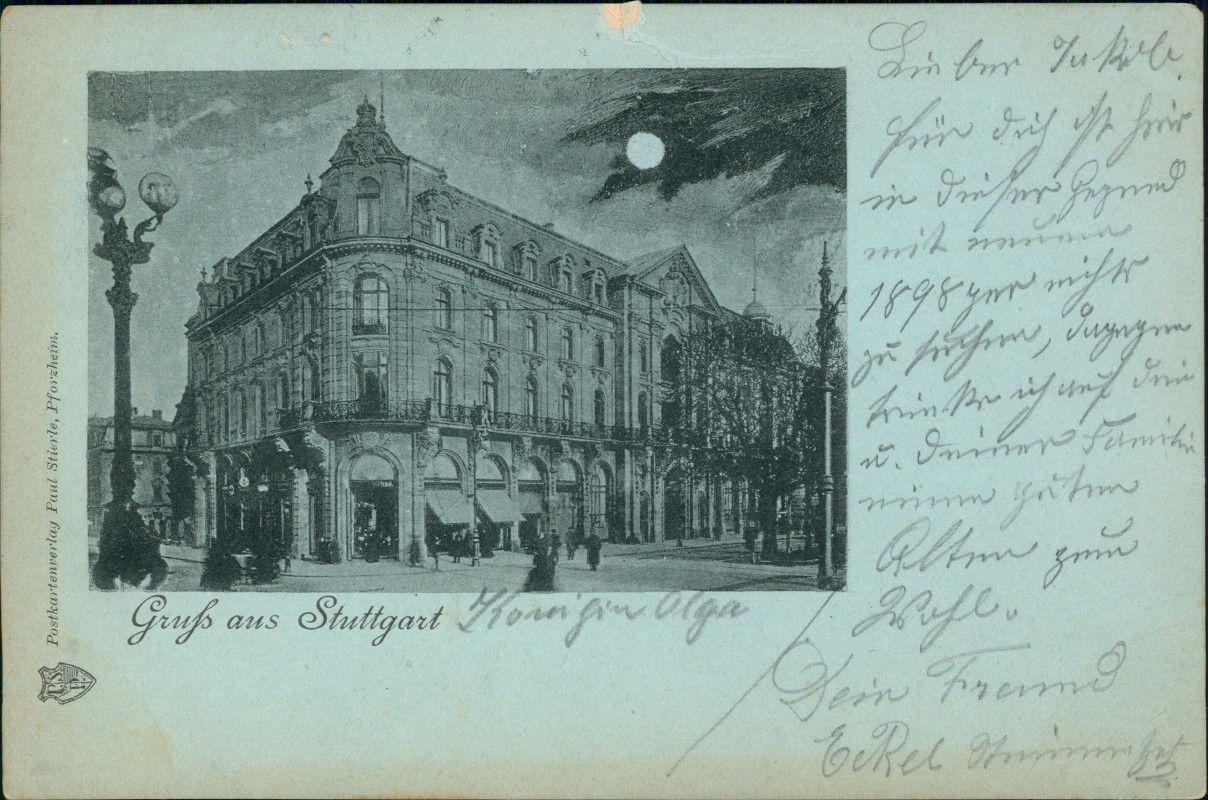 Postkartenverlag Paul Stierle, Pforzheim.
P. S.
P.
Gruß aus Stuttgart Königin Olga
Lieber Jakob
für dich ist hier
in dieser Gegend
mit neuem
1898 ger nichts
zu suchen, dagegen
trinke ich auf dein
u. deiner Familie
einen guten
Alten zum
Wohl.
Dein Freund
Eckel